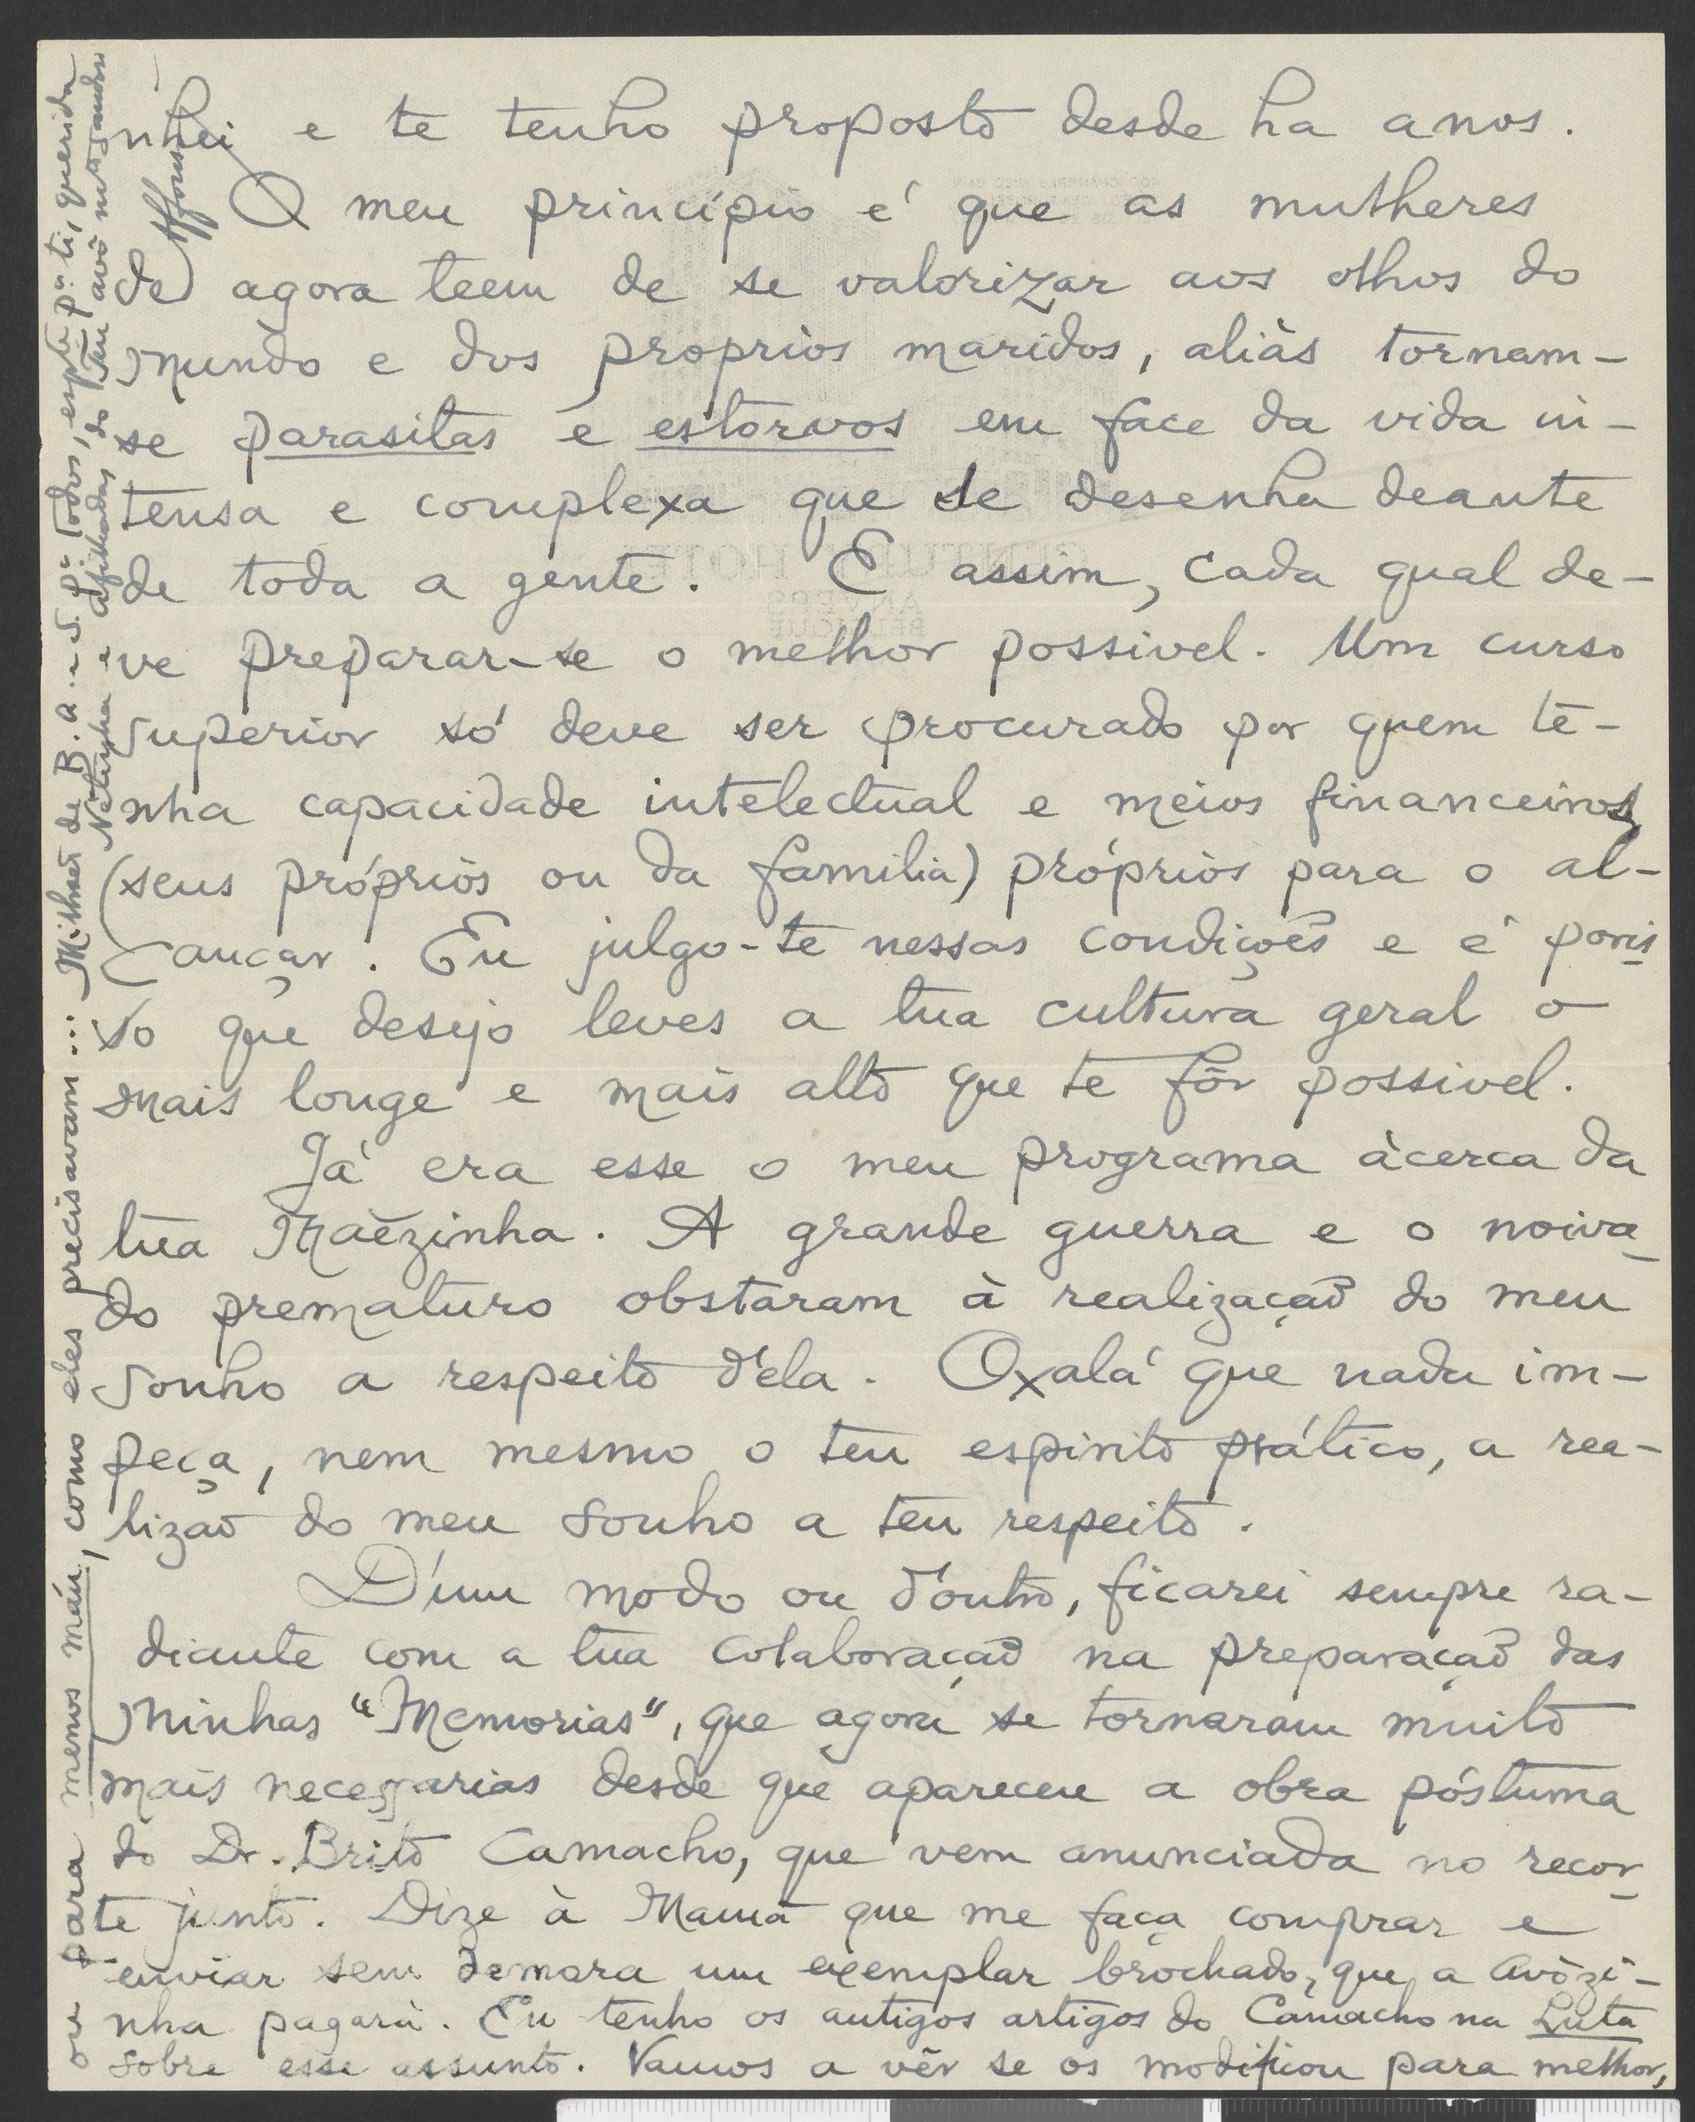 nhei e te tenho proposto desde ha anos.
O meu princípio é que as mulheres
de agora teem de se valorizar aos olhos do
mundo e dos proprios maridos, aliàs tornam-
se parasitas e estorvos em face da vida in-
tensa e complexa que se desenha deante
de toda a gente. E assim, cada qual de-
ve preparar-se o melhor possivel. Um curso
superior só deve ser procurado por quem te-
nha capacidade intelectual e meios financeiros
(seus próprios ou da familia) próprios para o al-
cançar. Eu julgo-te nessas condições e é poris
so que desejo leves a tua cultura geral o
mais longe e mais alto que te fôr possivel.
Já era esse o meu programa àcerca da
tua Mãezinha. A grande guerra e o noiva-
do prematuro obstaram à realização do meu
sonho a respeito d'ela. Oxalá que nada im-
peça, nem mesmo o teu espirito prático, a rea-
lizaõ do meu sonho a teu respeito.
D'um modo ou d'outro, ficarei sempre ra-
diante com a tua colaboração na preparação das
minhas "Memorias", que agora se tornaram muito
mais necessarias desde que apareceu a obra póstuma
do Dr. Brito Camacho, que vem anunciada no recor-
te junto. Dize à Mamã que me faça comprar e
enviar sem demora um exemplar brochado, que a Avòzi-
nha pagará. Eu tenho os antigos artigos do Camacho na Luta
sobre esse assunto. Vamos a vêr se os modificou para melhor,
ou para menos máu, como eles precisavam... Milhões de B. a. e S. pª todos, espte pª ti, querida
Netinha e afilhada, do Teu avô mtº amdor
Affonso